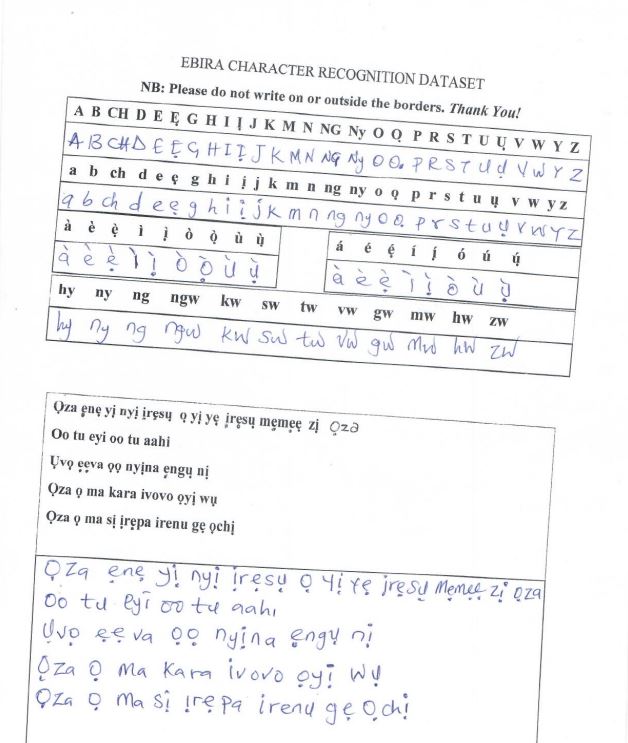 EBIRA CHARACTER RECOGNITION DATASET
NB: Please do not write on or outside the borders. Thank You!
A B CH D E Ẹ G H I Ị J K M N NG Ny O Ọ P R S T U Ụ V W Y Z
A B CH D E Ẹ G H I Ị J K M N Ng Ny O Ọ P R S T U Ụ V W Y Z
a b ch d e ẹ g h i ị j k m n ng ny o ọ p r s t u ụ v w y z
a b ch d e ẹ g h i ị j k m n ng ny o ọ p r s t u ụ v w y z
à è ẹ̀ ì ị̀ ò ọ̀ ù ụ̀
à è ẹ̀ ì ị̀ ò ọ̀ ù ụ̀
á é ẹ́ í ị́ ó ú ụ́
à è ẹ̀ ì ị̀ ò ù ụ̀
hy ny ng ngw kw sw tw vw gw mw hw zw
hy ny ng ngw kw sw tw vw gw mw hw zw
Ọza ẹnẹ yị nyị ịrẹsụ ọ yị yẹ ịrẹsụ mẹmẹẹ zị ọza
Oo tu eyi oo tu aahi
Ụvọ ẹẹva ọọ nyịna ẹngụ nị
Ọza ọ ma kara ivovo ọyị wụ
Ọza ọ ma sị ịrẹpa irenu gẹ ọchị
Ọza ẹnẹ yị nyị ịrẹsụ ọ yị yẹ ịrẹsụ mẹmẹẹ zị ọza
Oo tu eyi oo tu aahi
Ụvọ ẹẹva ọọ nyịna ẹngụ nị
Ọza ọ ma kara ivovo ọyị wụ
Ọza ọ ma sị ịrẹpa irenu gẹ ọchị